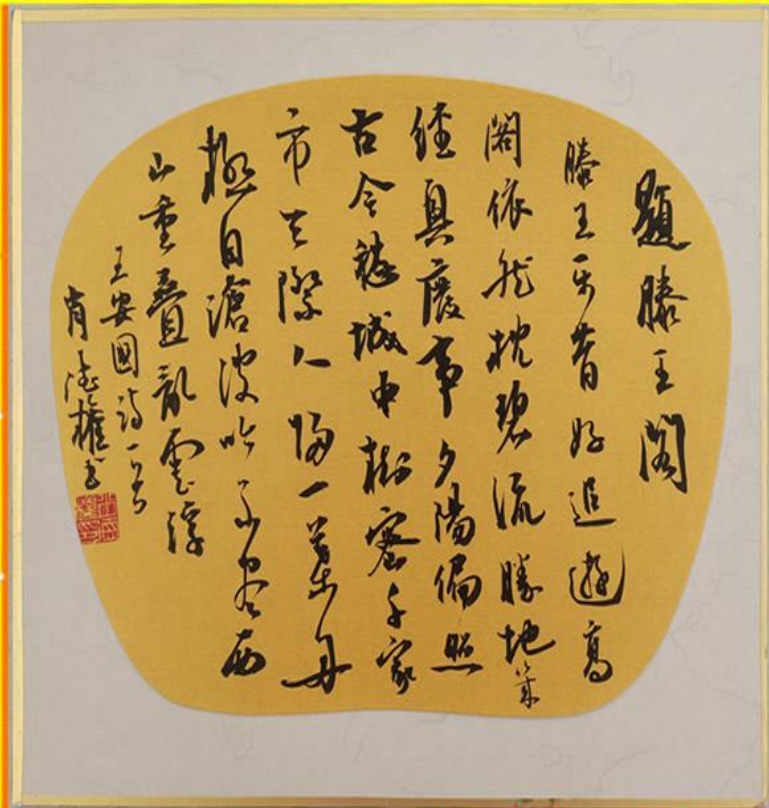 題滕王阁
滕王平昔好追遊高
閣依然枕碧流勝地幾
經興廢事夕陽偏照
古今愁城中樹密千家
市天際人歸一葉舟
極目滄波吟不尽西
山重疊亂雲浮
王安國詩一首
肖德權书